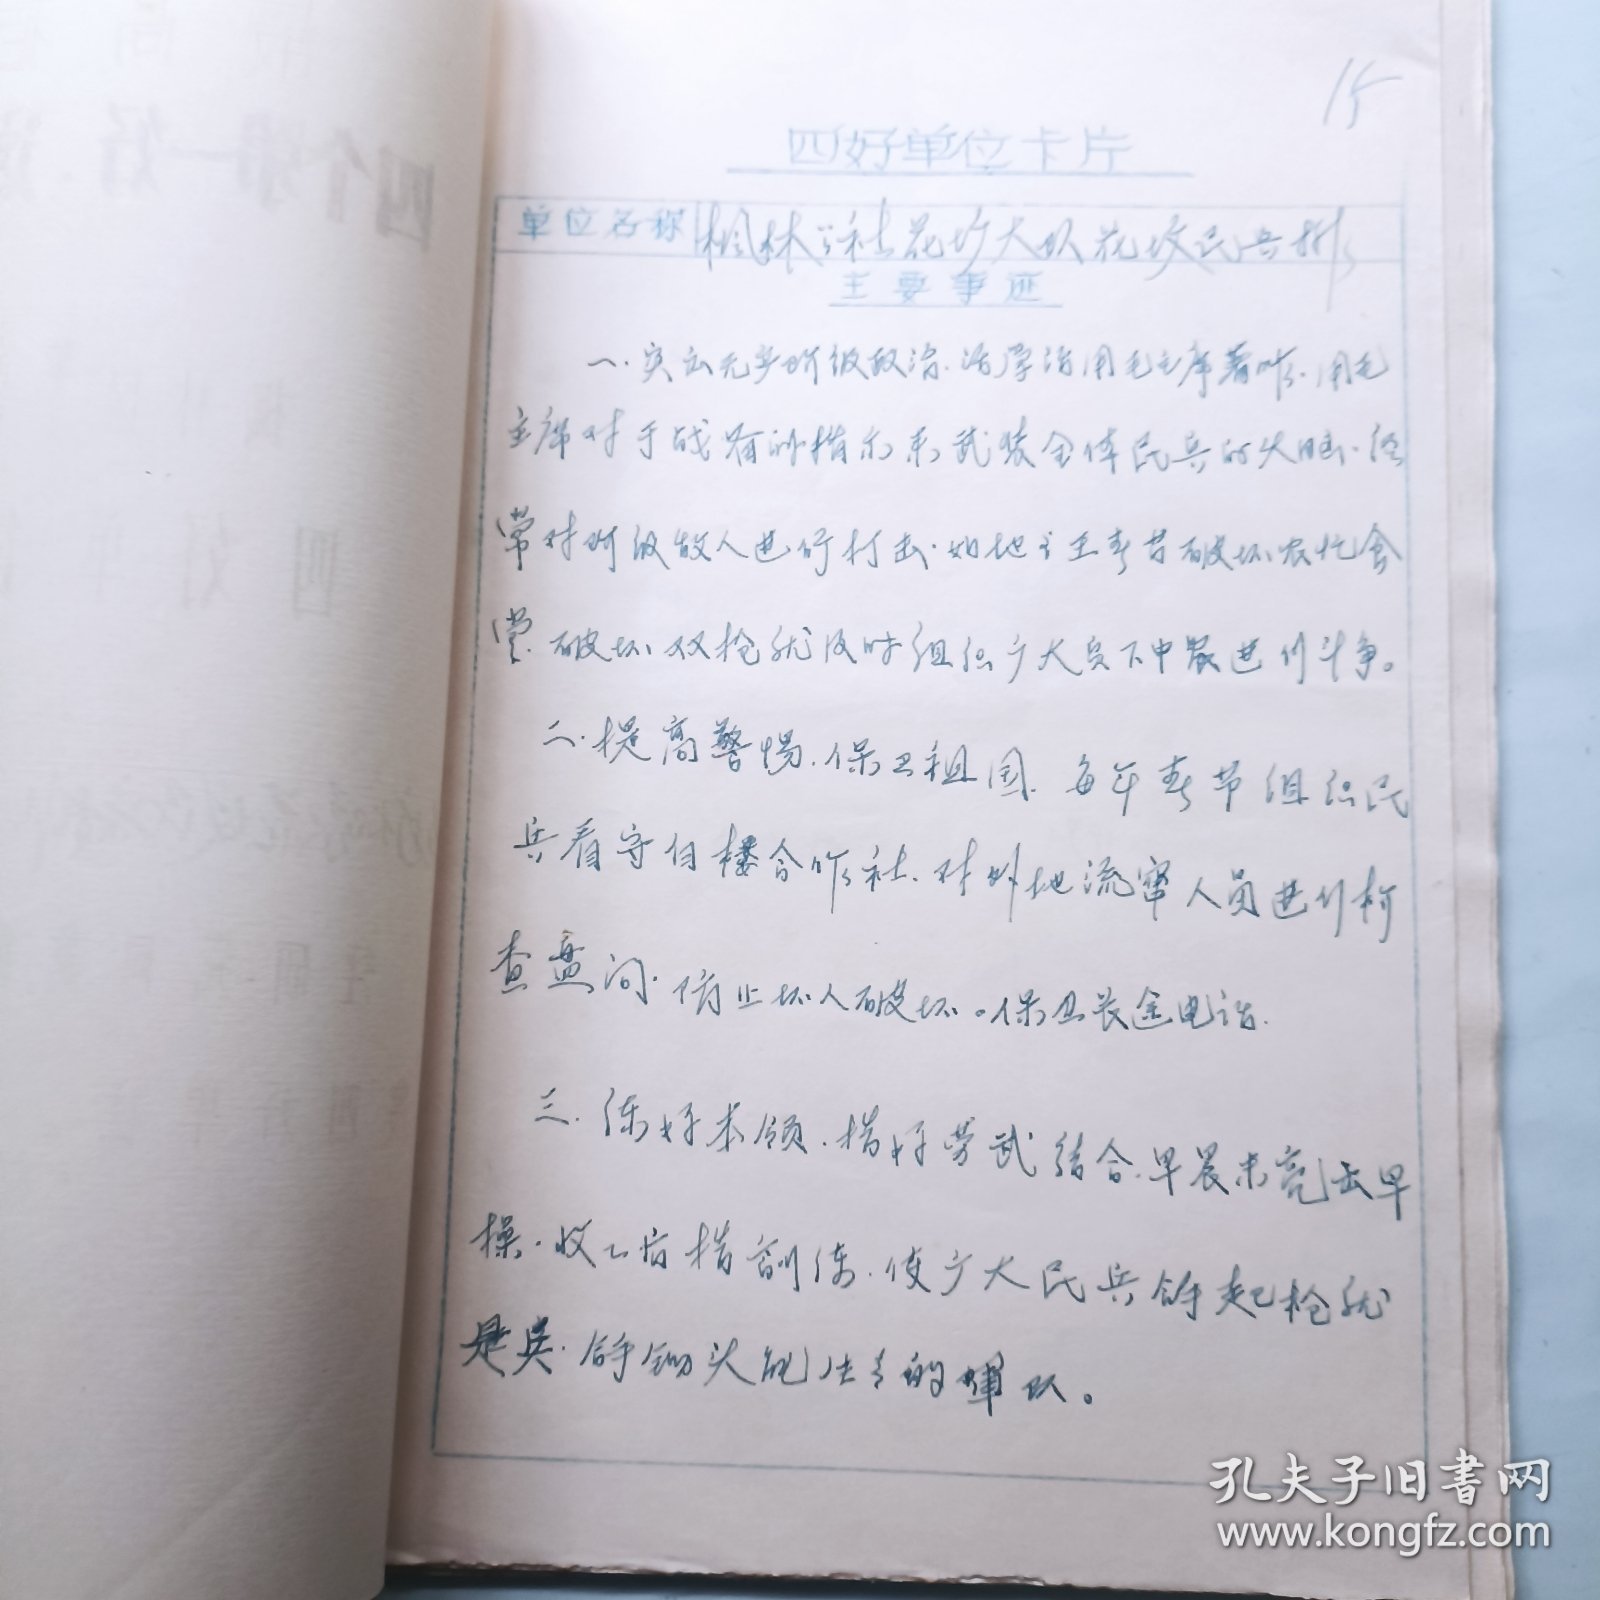 15
四好单位卡片
单位名称 枫林公社花坟大队花坟民兵排
主要事迹
一.突出无产阶级政治.活学活用毛主席著作.用毛
主席对于战备的指示来武装全体民兵的头脑.经
常对阶级敌人进行打击.如地主王春甘破坏农忙食
堂.破坏双抢就及时组织广大贫下中农进行斗争。
二.提高警惕.保卫祖国.每年春节组织民
兵看守白楼合作社.对外地流窜人员进行检
查盘问.防止坏人破坏。保卫长途电话.
三.练好本领.搞好劳武结合.早晨未亮出早
操.收工后搞訓练.使广大民兵拿起枪就
是兵.拿锄头能生产的
队。
四个第一好
四好
孔夫子旧书网
www.kongfz.com